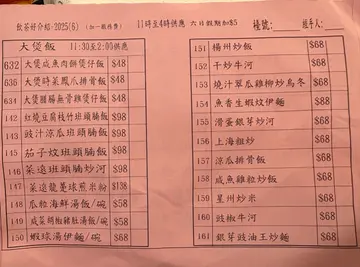 飲茶好介紹-2025(6) (加一服務費) 11時至4時供應 六日假期加$5 檯號: 經手人:
大煲飯 11:30至2:00供應
632 大煲咸魚肉餅煲仔飯 $48
636 大煲時菜鳳爪排骨飯 $48
634 大煲臘腸無骨雞煲仔飯 $48
142 紅燒豆腐枝竹班頭腩飯 $98
143 豉汁涼瓜班頭腩飯 $98
145 茄子炆班頭腩飯 $98
146 菜遠班頭腩炒河 $98
147 菜遠龍躉球煎米粉 $138
148 瓜粒海鮮湯飯/碗 $58
149 咸菜胡椒豬肚湯飯/碗 $58
150 蝦球湯伊麵/碗 $68
151 揚州炒飯 $68
152 干炒牛河 $68
153 燒汁翠瓜雞柳炒烏冬 $68
154 魚香生蝦炆伊麵 $68
155 滑蛋銀芽炒河 $68
156 上海粗炒 $68
157 涼瓜排骨飯 $68
158 咸魚雞粒炒飯 $68
159 星州炒米 $68
160 豉椒牛河 $68
161 銀芽豉油王炒麵 $68